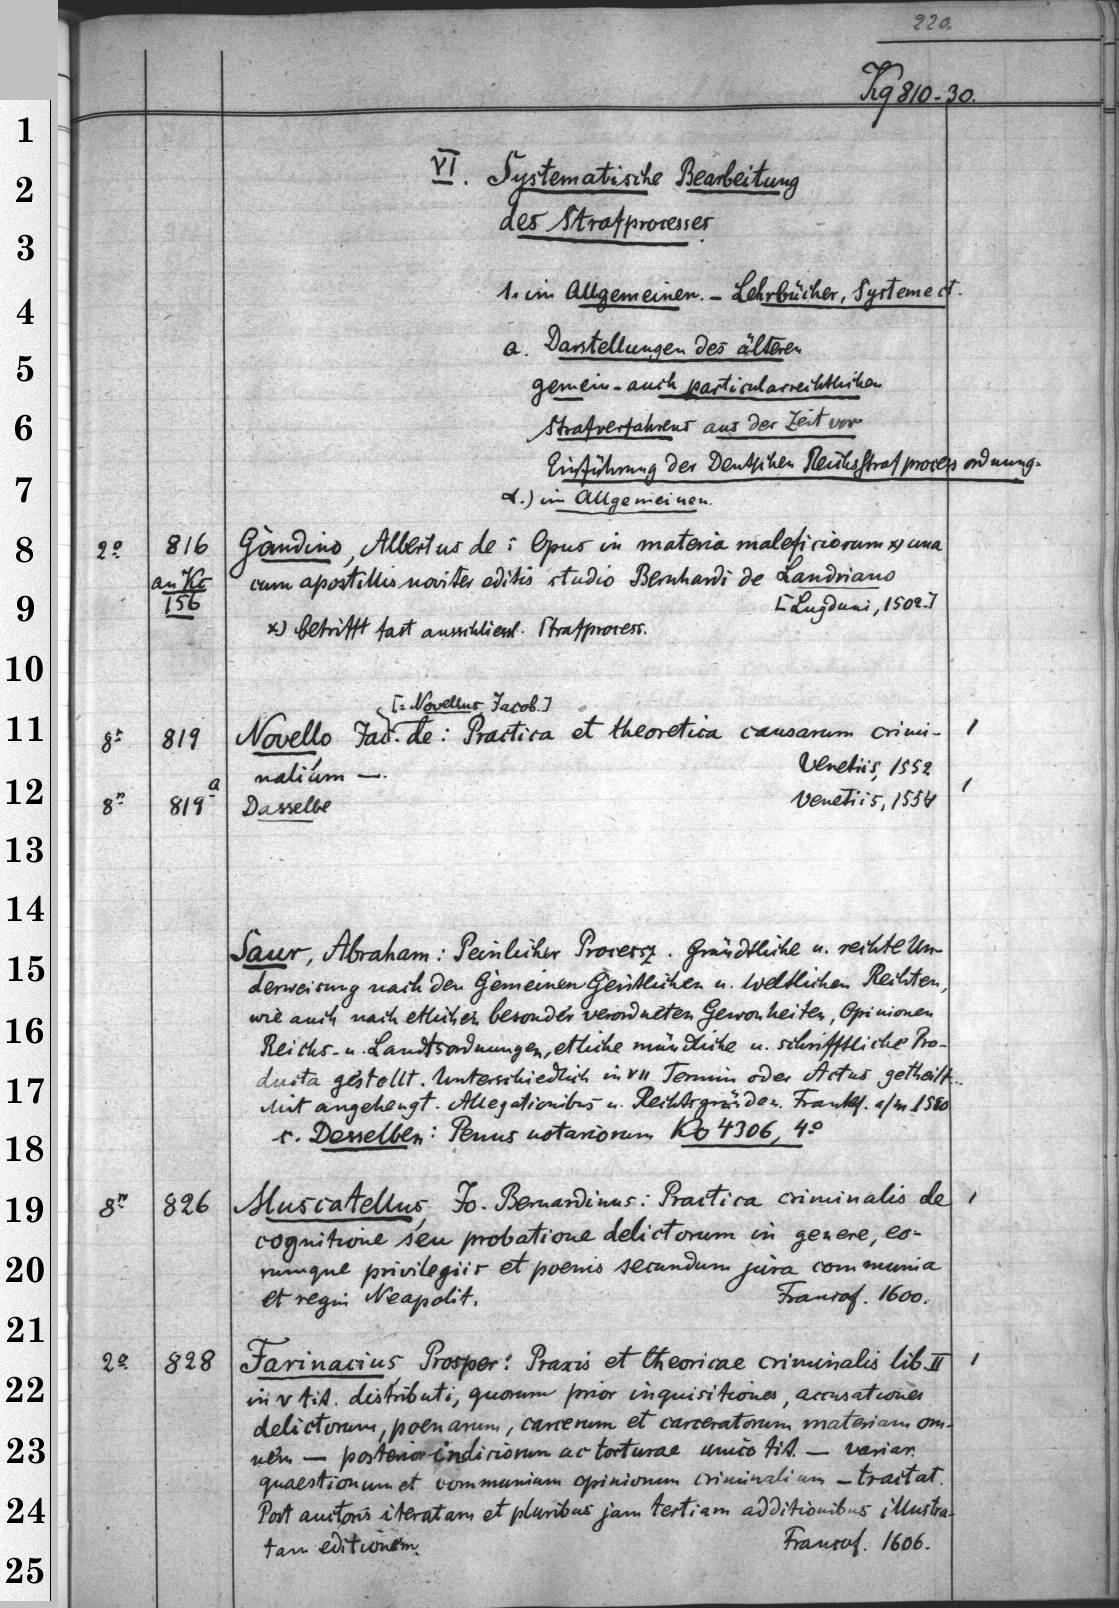 220.
Kq 810-30.
1
2
3
4
5
6
7
8
9
10
11
12
13
14
15
16
17
18
19
20
21
22
23
24
25
VI. Systematische Bearbeitung
des Strafprocesses
1. im Allgemeinen. – Lehrbücher, Systeme ct.
a. Darstellungen des älteren
gemein- auch particularrechtlichen
Strafverfahrens aus der Zeit vor
Einführung der Deutschen Reichsstrafprocessordnung.
α.) im Allgemeinen.
2° 816 Gandino, Albertus de: Opus in materia maleficiorum x) una
an Kc cum apostillis noviter editis studio Bernhardi de Landriano
156 [Lugduni, 1502.]
x) betrifft fast ausschliessl. Strafprocess.
[= Novellus, Jacob.]
8° 819 Novello Jac. de: Practica et theoretica causarum crimi-
nalium —. Venetiis, 1552
8° 819a Dasselbe Venetiis, 1554
Saur, Abraham: Peinlicher Processz. Gründtliche u. rechte Un-
derweisung nach den Gemeinen Geistlichen u. weltlichen Rechten,
wie auch nach etlichen besonder verordneten Gewonheiten, Opinionen
Reichs- u. Landtsordnungen, etliche mündliche u. schrifftliche Pro-
ducta gestellt. Unterschiedlich in VII Termin oder Actus getheilt..
Mit angehengt. Allegationibus u. Rechtsgründen. Frankf. a/m 1580
s. Desselben: Penus notariorum Ko 4306, 4°
8° 826 Muscatellus, Jo. Bernardinus: Practica criminalis de
cognitione seu probatione delictorum in genere, eo-
rumque privilegiis et poenis secundum jura communia
et regni Neapolit. Francof. 1600.
2° 828 Farinacius Prosper: Praxis et theoricae criminalis lib. II
in V tit. distributi, quorum prior inquisitiones, accusationes
delictorum, poenarum, carcerum et carceratorum materiam om-
nem — posterior indiciorum ac torturae unico tit. — variar.
quaestionum et communium opinionum criminalium – tractat.
Post auctoris iteratam et pluribus jam tertiam additionibus illustra-
tam editionem. Francof. 1606.